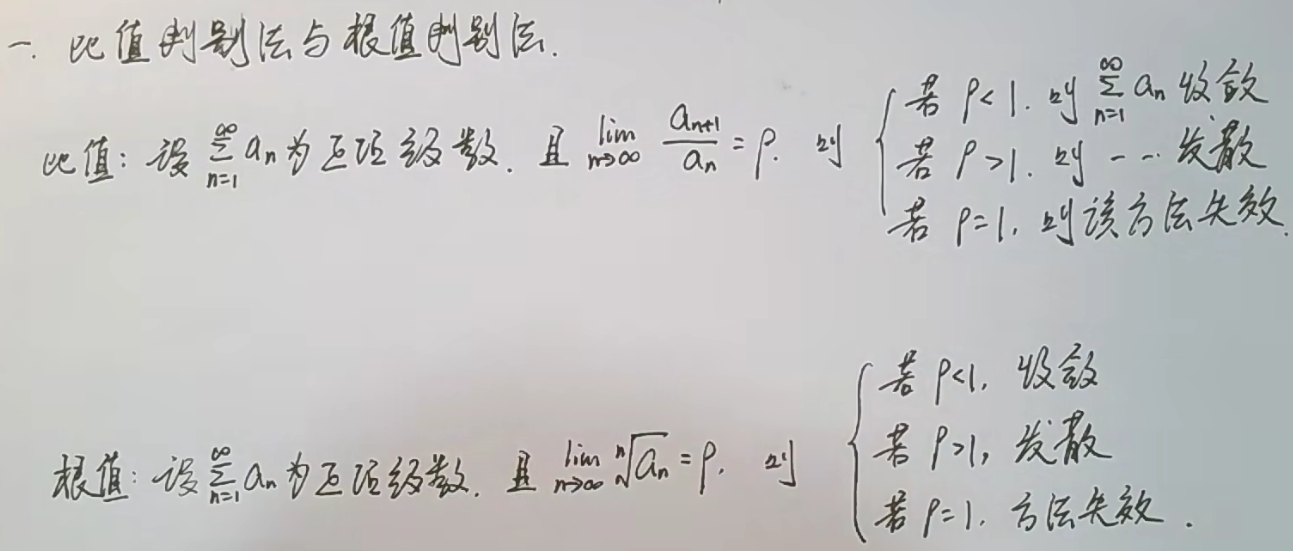 一. 比值判别法与根值判别法.
比值: 设 $\sum_{n=1}^{\infty} a_n$ 为正项级数. 且 $\lim_{n\to\infty} \frac{a_{n+1}}{a_n} = \rho$. 则
若 $\rho < 1$. 则 $\sum_{n=1}^{\infty} a_n$ 收敛
若 $\rho > 1$. 则 ---- 发散
若 $\rho = 1$, 则该方法失效.
根值: 设 $\sum_{n=1}^{\infty} a_n$ 为正项级数. 且 $\lim_{n\to\infty} \sqrt[n]{a_n} = \rho$. 则
若 $\rho < 1$, 收敛
若 $\rho > 1$, 发散
若 $\rho = 1$. 方法失效.